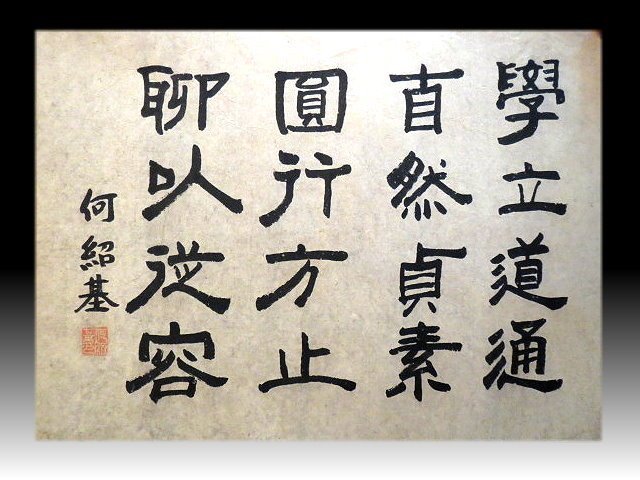 學立道通
自然貞素
圓行方止
聊以從容
何紹基